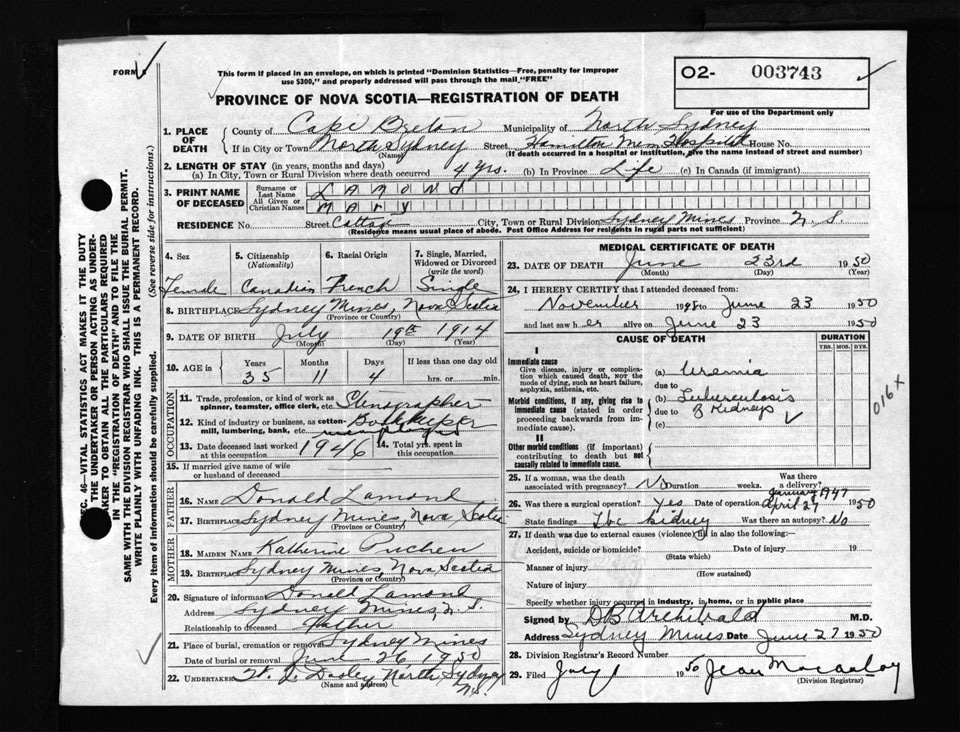 FORM
This form if placed in an envelope, on which is printed "Dominion Statistics—Free, penalty for improper
use $300," and properly addressed will pass through the mail "FREE"
PROVINCE OF NOVA SCOTIA—REGISTRATION OF DEATH
O2- 003743
For use of the Department only
1. PLACE OF DEATH County of Cape Breton Municipality of North Sydney
If in City or Town North Sydney Street Hamilton Mem Hospital House No.
(Name) (If death occurred in a hospital or institution, give the name instead of street and number)
2. LENGTH OF STAY (in years, months and days)
(a) In City, Town or Rural Division where death occurred 4 yrs. (b) In Province Life (c) In Canada (if immigrant)
3. PRINT NAME OF DECEASED Surname or Last Name LAMOND
All Given or Christian Names MARY
RESIDENCE No. Street Cottage City, Town or Rural Division Sydney Mines Province N.S.
(Residence means usual place of abode. Post Office Address for residents in rural parts not sufficient)
4. Sex 5. Citizenship (Nationality) 6. Racial Origin 7. Single, Married, Widowed or Divorced (write the word)
Female Canadian French Single
8. BIRTHPLACE Sydney Mines, Nova Scotia
(Province or Country)
9. DATE OF BIRTH July 19th 1914
(Month) (Day) (Year)
10. AGE in Years Months Days If less than one day old
35 11 4 hrs. or min.
OCCUPATION
11. Trade, profession, or kind of work as spinner, teamster, office clerk, etc. Stenographer
12. Kind of industry or business, as cotton-mill, lumbering, bank, etc.
13. Date deceased last worked at this occupation 1946 14. Total yrs. spent in this occupation
15. If married give name of wife or husband of deceased
FATHER
16. NAME Donald Lamond
17. BIRTHPLACE Sydney Mines, Nova Scotia
(Province or Country)
MOTHER
18. MAIDEN NAME Katherine
19. BIRTHPLACE Sydney Mines, Nova Scotia
(Province or Country)
20. Signature of informant Donald Lamond
Address Sydney Mines, N.S.
Relationship to deceased Father
21. Place of burial, cremation or removal Sydney Mines
Date of burial or removal June 26, 1950
22. UNDERTAKER North Sydney N.S.
(Name and address)
MEDICAL CERTIFICATE OF DEATH
23. DATE OF DEATH June 23rd 1950
(Month) (Day) (Year)
24. I HEREBY CERTIFY that I attended deceased from:
November to June 23 1950
and last saw her alive on June 23 1950
CAUSE OF DEATH DURATION
YRS. MOS. DYS.
I
Immediate cause
Give disease, injury or complication which caused death, not the mode of dying, such as heart failure, asphyxia, asthenia, etc.
(a) Uremia
due to
Morbid conditions, if any, giving rise to immediate cause (stated in order proceeding backwards from immediate cause).
(b) Tuberculosis
due to of Kidneys
(c)
016x
II
Other morbid conditions (if important) contributing to death but not causally related to immediate cause.
25. If a woman, was the death associated with pregnancy? No Duration weeks. Was there a delivery?
January 1947
26. Was there a surgical operation? Yes Date of operation April 27 1950
State findings tbc kidney Was there an autopsy? No
27. If death was due to external causes (violence) fill in also the following:—
Accident, suicide or homicide? Date of injury 19
(State which)
Manner of injury
(How sustained)
Nature of injury
Specify whether injury occurred in industry, in home, or in public place
Signed by DB Archibald M.D.
Address Sydney Mines Date June 27 1950
28. Division Registrar's Record Number
29. Filed July 1950 Jean Macaulay
(Division Registrar)
SEC. 46—VITAL STATISTICS ACT MAKES IT THE DUTY
OF THE UNDERTAKER OR PERSON ACTING AS UNDER-
TAKER TO OBTAIN ALL THE PARTICULARS REQUIRED
IN THE "REGISTRATION OF DEATH" AND TO FILE THE
SAME WITH THE DIVISION REGISTRAR WHO SHALL ISSUE THE BURIAL PERMIT.
WRITE PLAINLY WITH UNFADING INK. THIS IS A PERMANENT RECORD.
Every item of information should be carefully supplied. (See reverse side for instructions.)